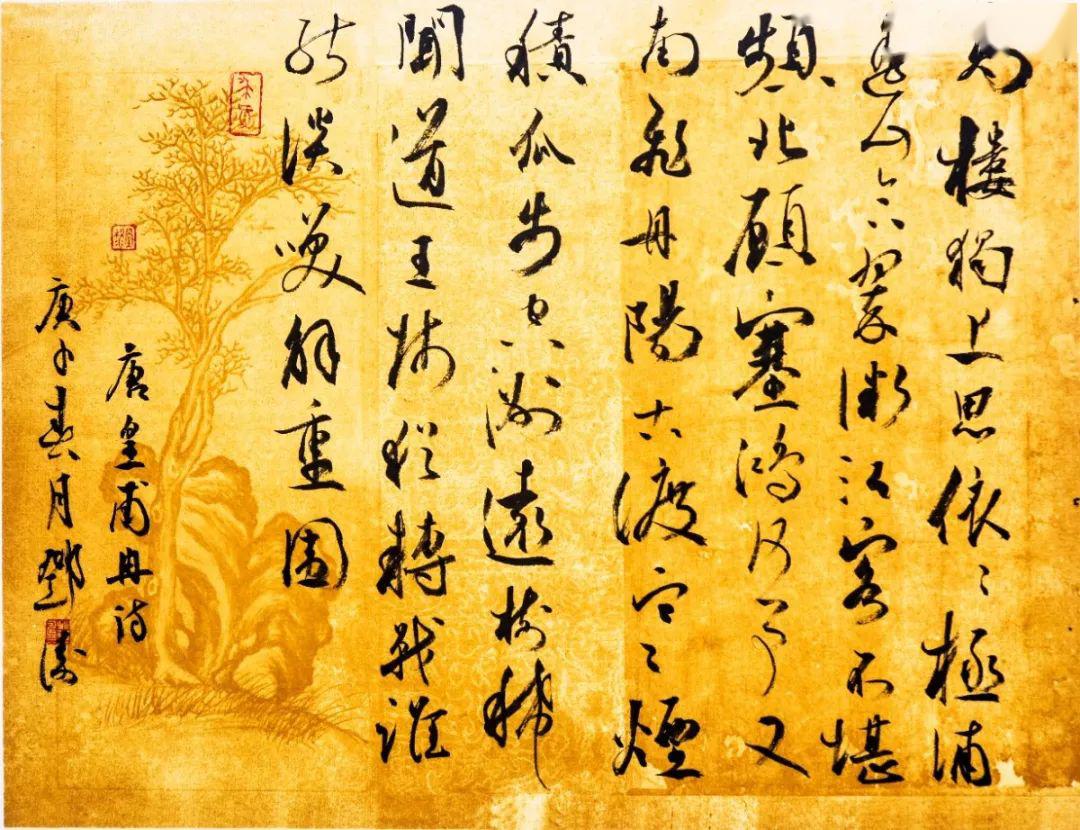 高樓獨上思依〻極浦
遥山合翠微江客不堪
頻北顧塞鴻何事又
南飛丹陽古渡寒煙
積瓜步空洲遠樹稀
聞道王師猶轉戰誰
能談笑解重圍
唐皇甫冉诗
庚子春月鄧